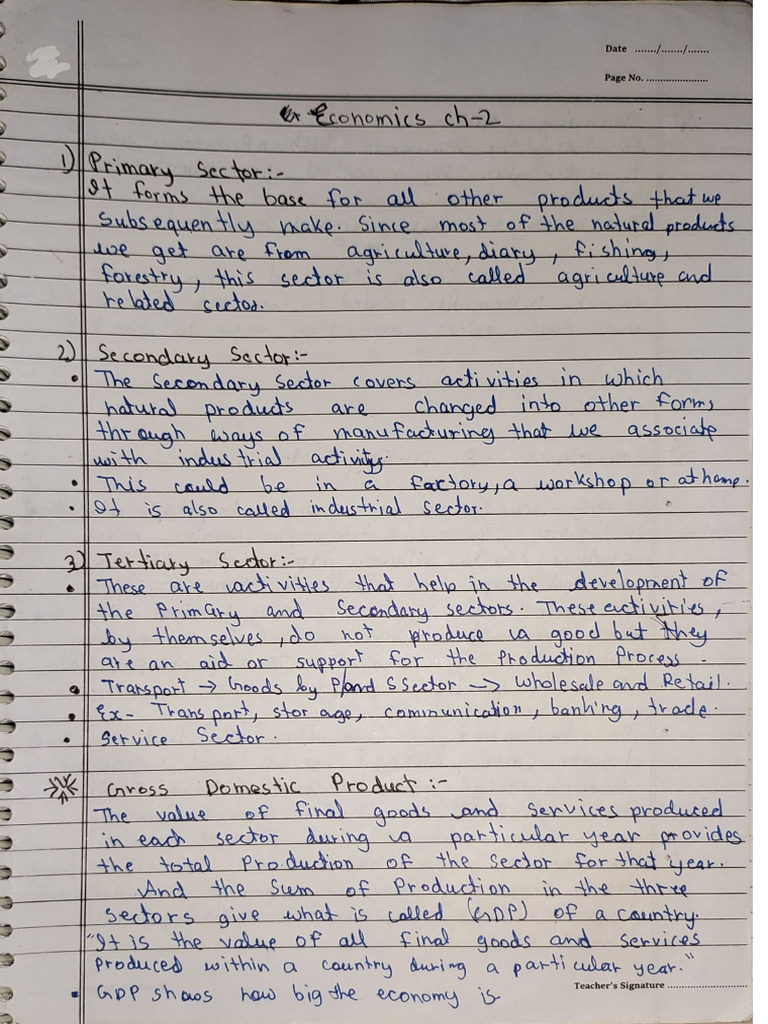 Date ....../......./.......
Page No. ......................
Economics ch-2
1) Primary Sector:-
It forms the base for all other products that we
subsequently make. Since most of the natural products
we get are from agriculture, diary, fishing,
forestry, this sector is also called agriculture and
related sector.
2) Secondary Sector:-
• The Secondary Sector covers activities in which
natural products are changed into other forms
through ways of manufacturing that we associate
with industrial activity.
• This could be in a factory, a workshop or at home.
• It is also called industrial sector.
3) Tertiary Sector:-
• These are activities that help in the development of
the Primary and Secondary sectors. These activities,
by themselves, do not produce a good but they
are an aid or support for the Production Process.
• Transport → Goods by P/and S Sector → Wholesale and Retail.
• Ex- Transport, storage, communication, banking, trade.
• Service Sector.
Gross Domestic Product:-
The value of final goods and services produced
in each sector during a particular year provides
the total Production of the Sector for that year.
And the Sum of Production in the three
sectors give what is called (GDP) of a country.
"It is the value of all final goods and services
produced within a country during a particular year."
• GDP shows how big the economy is.
Teacher's Signature ..............................